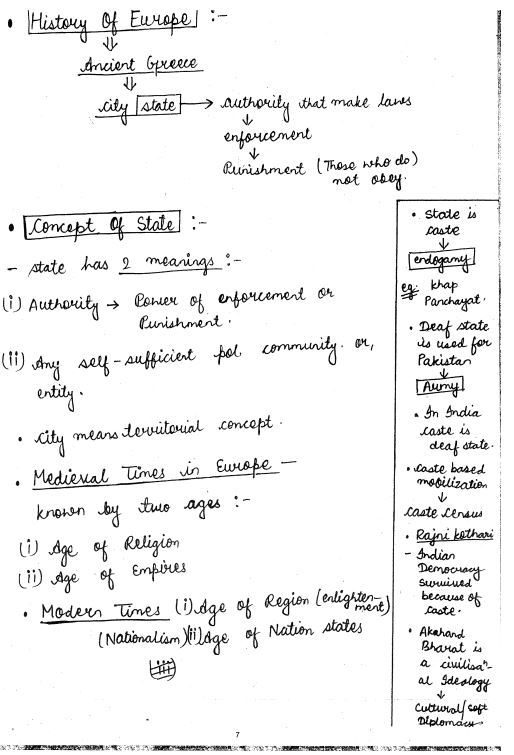 • History Of Europe :-
⇓
Ancient Greece
⇓
city state → authority that make laws
↓
enforcement
↓
Punishment (Those who do)
not obey.
• Concept Of State :-
- state has 2 meanings :-
(i) Authority → Power of enforcement or
Punishment.
(ii) Any self-sufficient pol community or,
entity.
• city means territorial concept.
• Medieval Times in Europe —
known by two ages :-
(i) Age of Religion
(ii) Age of Empires
• Modern Times (i) Age of Region (enlighten-
ment)
(Nationalism) (ii) Age of Nation states
• State is
caste
↓
endogamy
eg: Khap
Panchayat.
• Deaf state
is used for
Pakistan
↓
Army
• In India
caste is
deaf state.
• caste based
mobilization
↓
caste census
• Rajni Kothari
- Indian
Democracy
survived
because of
caste.
• Akahand
Bharat is
a civilisan-
al Ideology
↓
Cultural/soft
Diplomacy
7